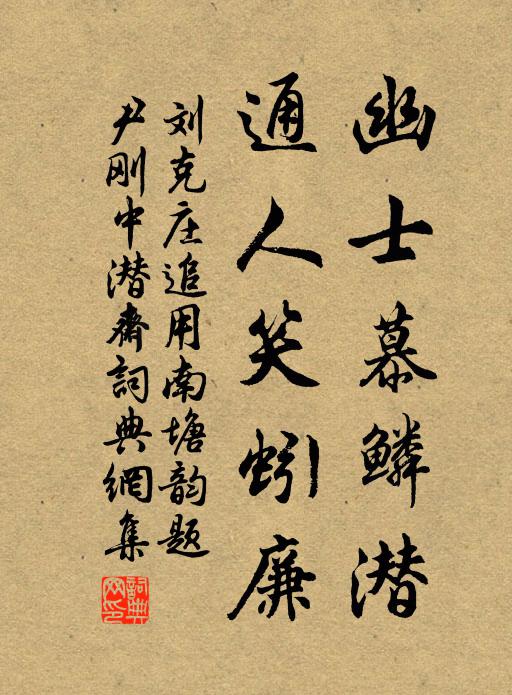 幽士慕鳞潜
通人笑蚓廉
刘克庄追用南塘韵题
尹刚中潜斋詞典網集
詞典网印